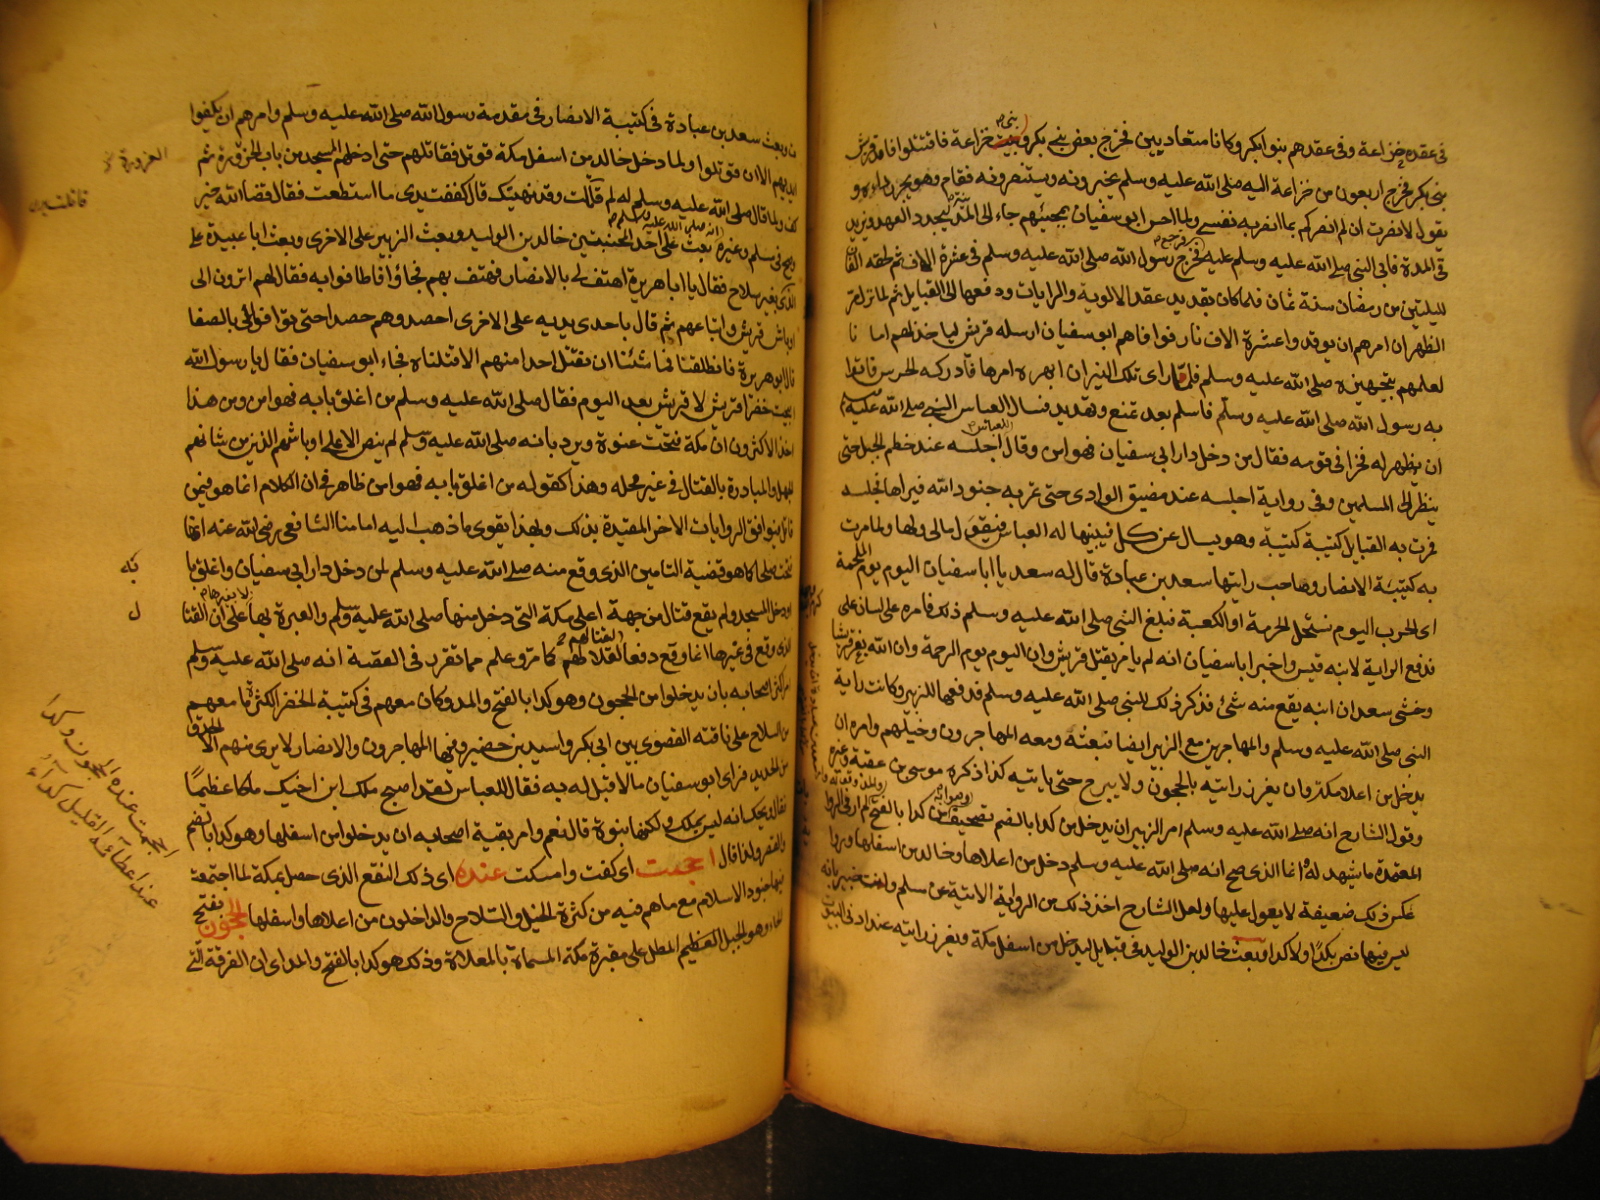 في عقده خزاعة وفي عقدهم بنوا بكر وكانا متعاديين فخرج بعض بني بكر وبيت خزاعة فاقتتلوا فامد قريش
بني بكر فخرج اربعون من خزاعة اليه صلى الله عليه وسلم يخبرونه ويستنصرونه فقام وهو يجر رداءه و
يقول لا نصرت ان لم انصركم بما انصر به نفسي ولما احس ابو سفيان بمجيئهم جاء الى المدينة ليجدد العهد ويزيد
في المدة فابى النبي صلى الله عليه وسلم عليه فخرج رسول الله صلى الله عليه وسلم في عشرة الاف ثم لحقه الفان
لليلتين من رمضان سنة ثمان فلما كان بقديد عقد الالوية والرايات ودفعها الى القبايل ثم لما نزل مر
الظهران امرهم ان يوقدوا عشرة الاف نار فوافاهم ابو سفيان ارسله قريش لياخذ لهم امانا
لعلمهم بتجهيزه صلى الله عليه وسلم فلما راى تلك النيران ابهره امرها فادركه الحرس فاتوا
به رسول الله صلى الله عليه وسلم فاسلم بعد تمنع وتهديد فسال العباس النبي صلى الله عليه وسلم
ان يظهر له فخرا في قومه فقال من دخل دار ابي سفيان فهو امن وقال للعباس اجلسه عند خطم الجبل حتى
ينظر الى المسلمين وفي رواية اجلسه عند مضيق الوادي حتى تمر به جنود الله فيراها فجلسه
فمرت به القبايل كتيبة كتيبة وهو يسال عن كل فيبينها له العباس فيقول مالي ولها ولما مرت
به كتيبة الانصار وصاحب رايتها سعد بن عبادة قال له سعد يا ابا سفيان اليوم يوم الملحمة
اى الحرب اليوم تستحل الحرمة او الكعبة فبلغ النبي صلى الله عليه وسلم ذلك فامره على لسان على
فدفع الراية لابنه قيس واخبر ابا سفيان انه لم يامر بقتل قريش وان اليوم يوم الرحمة وان الله يعز قريشا
وخشى سعد ان ابنه يقع منه شئ فذكر ذلك للنبي صلى الله عليه وسلم فدفعها للزبير وكانت راية
النبي صلى الله عليه وسلم والمهاجرين مع الزبير ايضا فبعثه ومعه المهاجرون وخيلهم وامره ان
يدخل من اعلا مكة وان يغرز رايته بالحجون ولا يبرح حتى ياتيه كذا ذكره موسى بن عقبة وغيره
وقول الشارح انه صلى الله عليه وسلم امر الزبير ان يدخل من كدا بالضم تصحيف وصوابه من كدا بالفتح
المعتمدة ما يشهد له وانما الذى صح انه صلى الله عليه وسلم دخل من اعلاها وخالد من اسفلها وروا
عكس ذلك ضعيفة لا يعول عليها ولعل الشارح اخذ ذلك من الرواية الاتية عن مسلم وانت خبير بانه
ليس فيها نص بكدا ولا كدا وبعث خالد بن الوليد في قبايل ليدخل من اسفل مكة ويغرز رايته عند ادنى البيوت
وبعث سعد بن عبادة في كتيبة الانصار في مقدمة رسول الله صلى الله عليه وسلم وامرهم ان يكفوا
ايديهم الا ان قوتلوا ولما دخل خالد من اسفل مكة قوتل فقاتلهم حتى ادخلهم المسجد من باب الحزورة ثم
كف ولما قال صلى الله عليه وسلم له لم قاتلت وقد نهيتك قال كففت يدى ما استطعت فقال قضاء الله خير
وصح في مسلم وغيره انه صلى الله عليه وسلم بعث على احد المجنبتين خالد بن الوليد وبعث الزبير على الاخرى وبعث ابا عبيدة على
الذى بغير سلاح فقال يا ابا هريرة اهتف لي بالانصار فهتف بهم فجاؤا فاطافوا به فقال لهم اترون الى
اوباش قريش واتباعهم ثم قال باحدى يديه على الاخرى احصدوهم حصدا حتى توافوني بالصفا
قال ابو هريرة فانطلقنا فما شئنا ان نقتل احدا منهم الا قتلناه فجاء ابو سفيان فقال يا رسول الله
ابيحت خضراء قريش لا قريش بعد اليوم فقال صلى الله عليه وسلم من اغلق بابه فهو امن ومن هذا
اخذ الاكثرون ان مكة فتحت عنوة ويرد بانه صلى الله عليه وسلم لم ينص الا على اوباشهم الذين من شانهم
الجهل والمبادرة بالقتال في غير محله وهذا كقوله من اغلق بابه فهو امن ظاهر في ان الكلام انما هو فيمن
قاتل فتوافق الروايات الاخر المقيدة بذلك وبهذا يقوى ما ذهب اليه امامنا الشافعي رضى الله عنه انها
فتحت صلحا كما هو قضية التامين الذى وقع منه صلى الله عليه وسلم لمن دخل دار ابي سفيان واغلق بابه
او دخل المسجد ولم يقع قتال من جهة اعلى مكة التي دخل منها صلى الله عليه وسلم والعبرة بها لا بغيرها على ان القتال
الذى وقع في غيرها انما وقع دفعا لقتالهم كما مر وعلم مما تقرر في القصة انه صلى الله عليه وسلم
امر اكثر اصحابه بان يدخلوا من الحجون وهو كدا بالفتح والمد وكان معهم في كتيبة الخضر الكثرة ما معهم
من السلاح على ناقته القصوى بين ابي بكر واسيد بن حضير وفيها المهاجرون والانصار لا يرى منهم الا الحدق
من الحديد فراى ابو سفيان مالا قبل له به فقال للعباس لقد اصبح ملك ابن اخيك ملكا عظيما
فقال ويحك انه ليس بملك ولكنها نبوة قال نعم وامر بقية اصحابه ان يدخلوا من اسفلها وهو كدا بالضم
والقصر ولذا قال اجمت اى كفت وامسكت عنده اى ذلك النقع الذى حصل بمكة لما اجتمعت
فيها جنود الاسلام مع ماهم فيه من كثرة الخيل والسلاح والداخلون من اعلاها واسفلها الحجون بفتح
الحاء وهو الجبل العظيم المطل على مقبرة مكة المسماة بالمعلاة وذلك هو كدا بالفتح والمد اى ان الفرقة التي
احجمت عنده الحجون وكدا
عند اعطائه القليل كداء